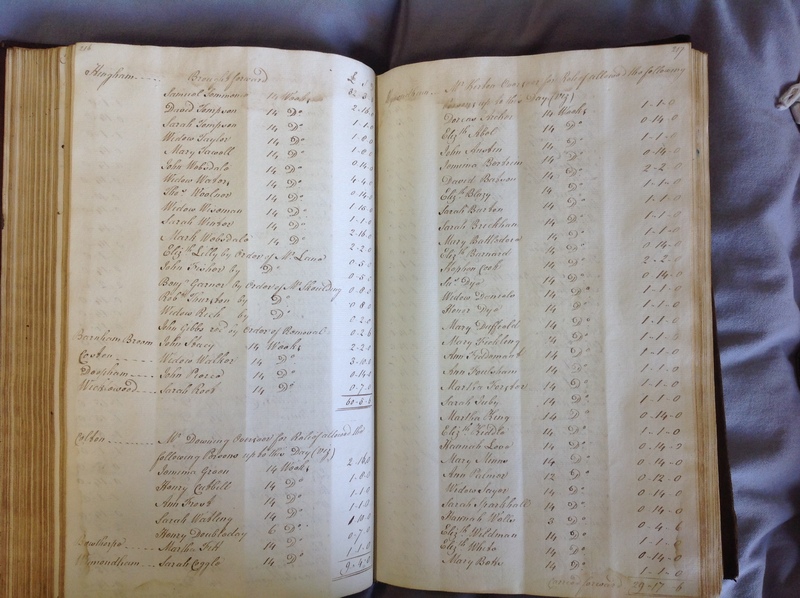 216
Hingham Brought forward £ s d
Samuel Simmons 14 Weeks
David Tompson 14 Do 2-16-0
Sarah Tompson 14 Do 1-1-0
Widow Taylor 14 Do 1-0-0
Mary Tawell 14 Do 1-0-0
John Wobsdale 14 Do 0-14-0
Widow Waters 14 Do 4-4-0
Thos Woolnor 14 Do 0-14-0
Widow Wiseman 14 Do 1-15-0
Sarah Winter 14 Do 1-1-0
Mark Wobsdale 14 Do 2-16-0
Elizth Lilly by Order of Mr Lane 2-2-0
John Fisher by Do 0-5-0
Benjn Garner by Order of Mr Shoulding 0-5-0
Robt Thurston by Do 0-8-0
Widow Rich by Do 0-8-0
John Gibbs red by Order of Removal 0-2-0
Barnham Broom John Stacy 14 Weeks 0-2-6
Coston Widow Walker 14 Do 2-2-0
Deopham John Pierce 14 Do 3-10-0
Wicklewood Sarah Root 14 Do 0-14-0
0-7-0
60-6-6
Colton Mr Downing Overseer for Relief allowed the
following Persons up to this Day (viz)
Jemima Green 14 Weeks 2-16-0
Henry Cubbill 14 Do 1-8-0
Ann Frost 14 Do 1-1-0
Sarah Watling 14 Do 1-1-0
Henry Doubleday 6 Do 1-10-0
Martha Fitt 14 Do 0-7-0
Wymondham Sarah Coggle 14 Do 1-1-0
9-4-0
217
Mr Overseer for Relief allowed the following
Persons up to this Day (viz)
Dorcas Archer 14 Weeks 1-1-0
Elizth Abel 14 Do 0-14-0
John Austin 14 Do 1-1-0
Jemima Bertram 14 Do 0-14-0
David Batson 14 Do 2-2-0
Elizth Blazy 14 Do 1-1-0
Sarah Burton 14 Do 1-1-0
Sarah Breekham 14 Do 1-1-0
Mary Battledore 14 Do 1-1-0
Elizth Barnard 14 Do 0-14-0
Stephen Cook 14 Do 2-2-0
Jno Dye 14 Do 0-14-0
Widow Daniels 14 Do 1-1-0
Henry Dye 14 Do 1-1-0
Mary Duffield 14 Do 1-1-0
Mary Fickling 14 Do 1-1-6
Ann Fiddemant 14 Do 1-1-0
Ann Foulsham 14 Do 1-1-0
Martha Forster 14 Do 1-1-0
Sarah Juby 14 Do 1-1-0
Martha King 14 Do 0-14-0
Elizth Kiddle 14 Do 1-1-0
Hannah Love 14 Do 0-14-0
Mary Minns 14 Do 0-14-0
Ann Palmer 12 Do 0-12-0
Widow Sayer 14 Do 0-14-0
Sarah Sparkhall 14 Do 0-14-0
Hannah Watts 3 Do 0-4-6
Elizth Wildman 14 Do 1-1-0
Elizth White 14 Do 0-14-0
Mary Bates 14 Do 1-1-0
Carried forward 29-17-6